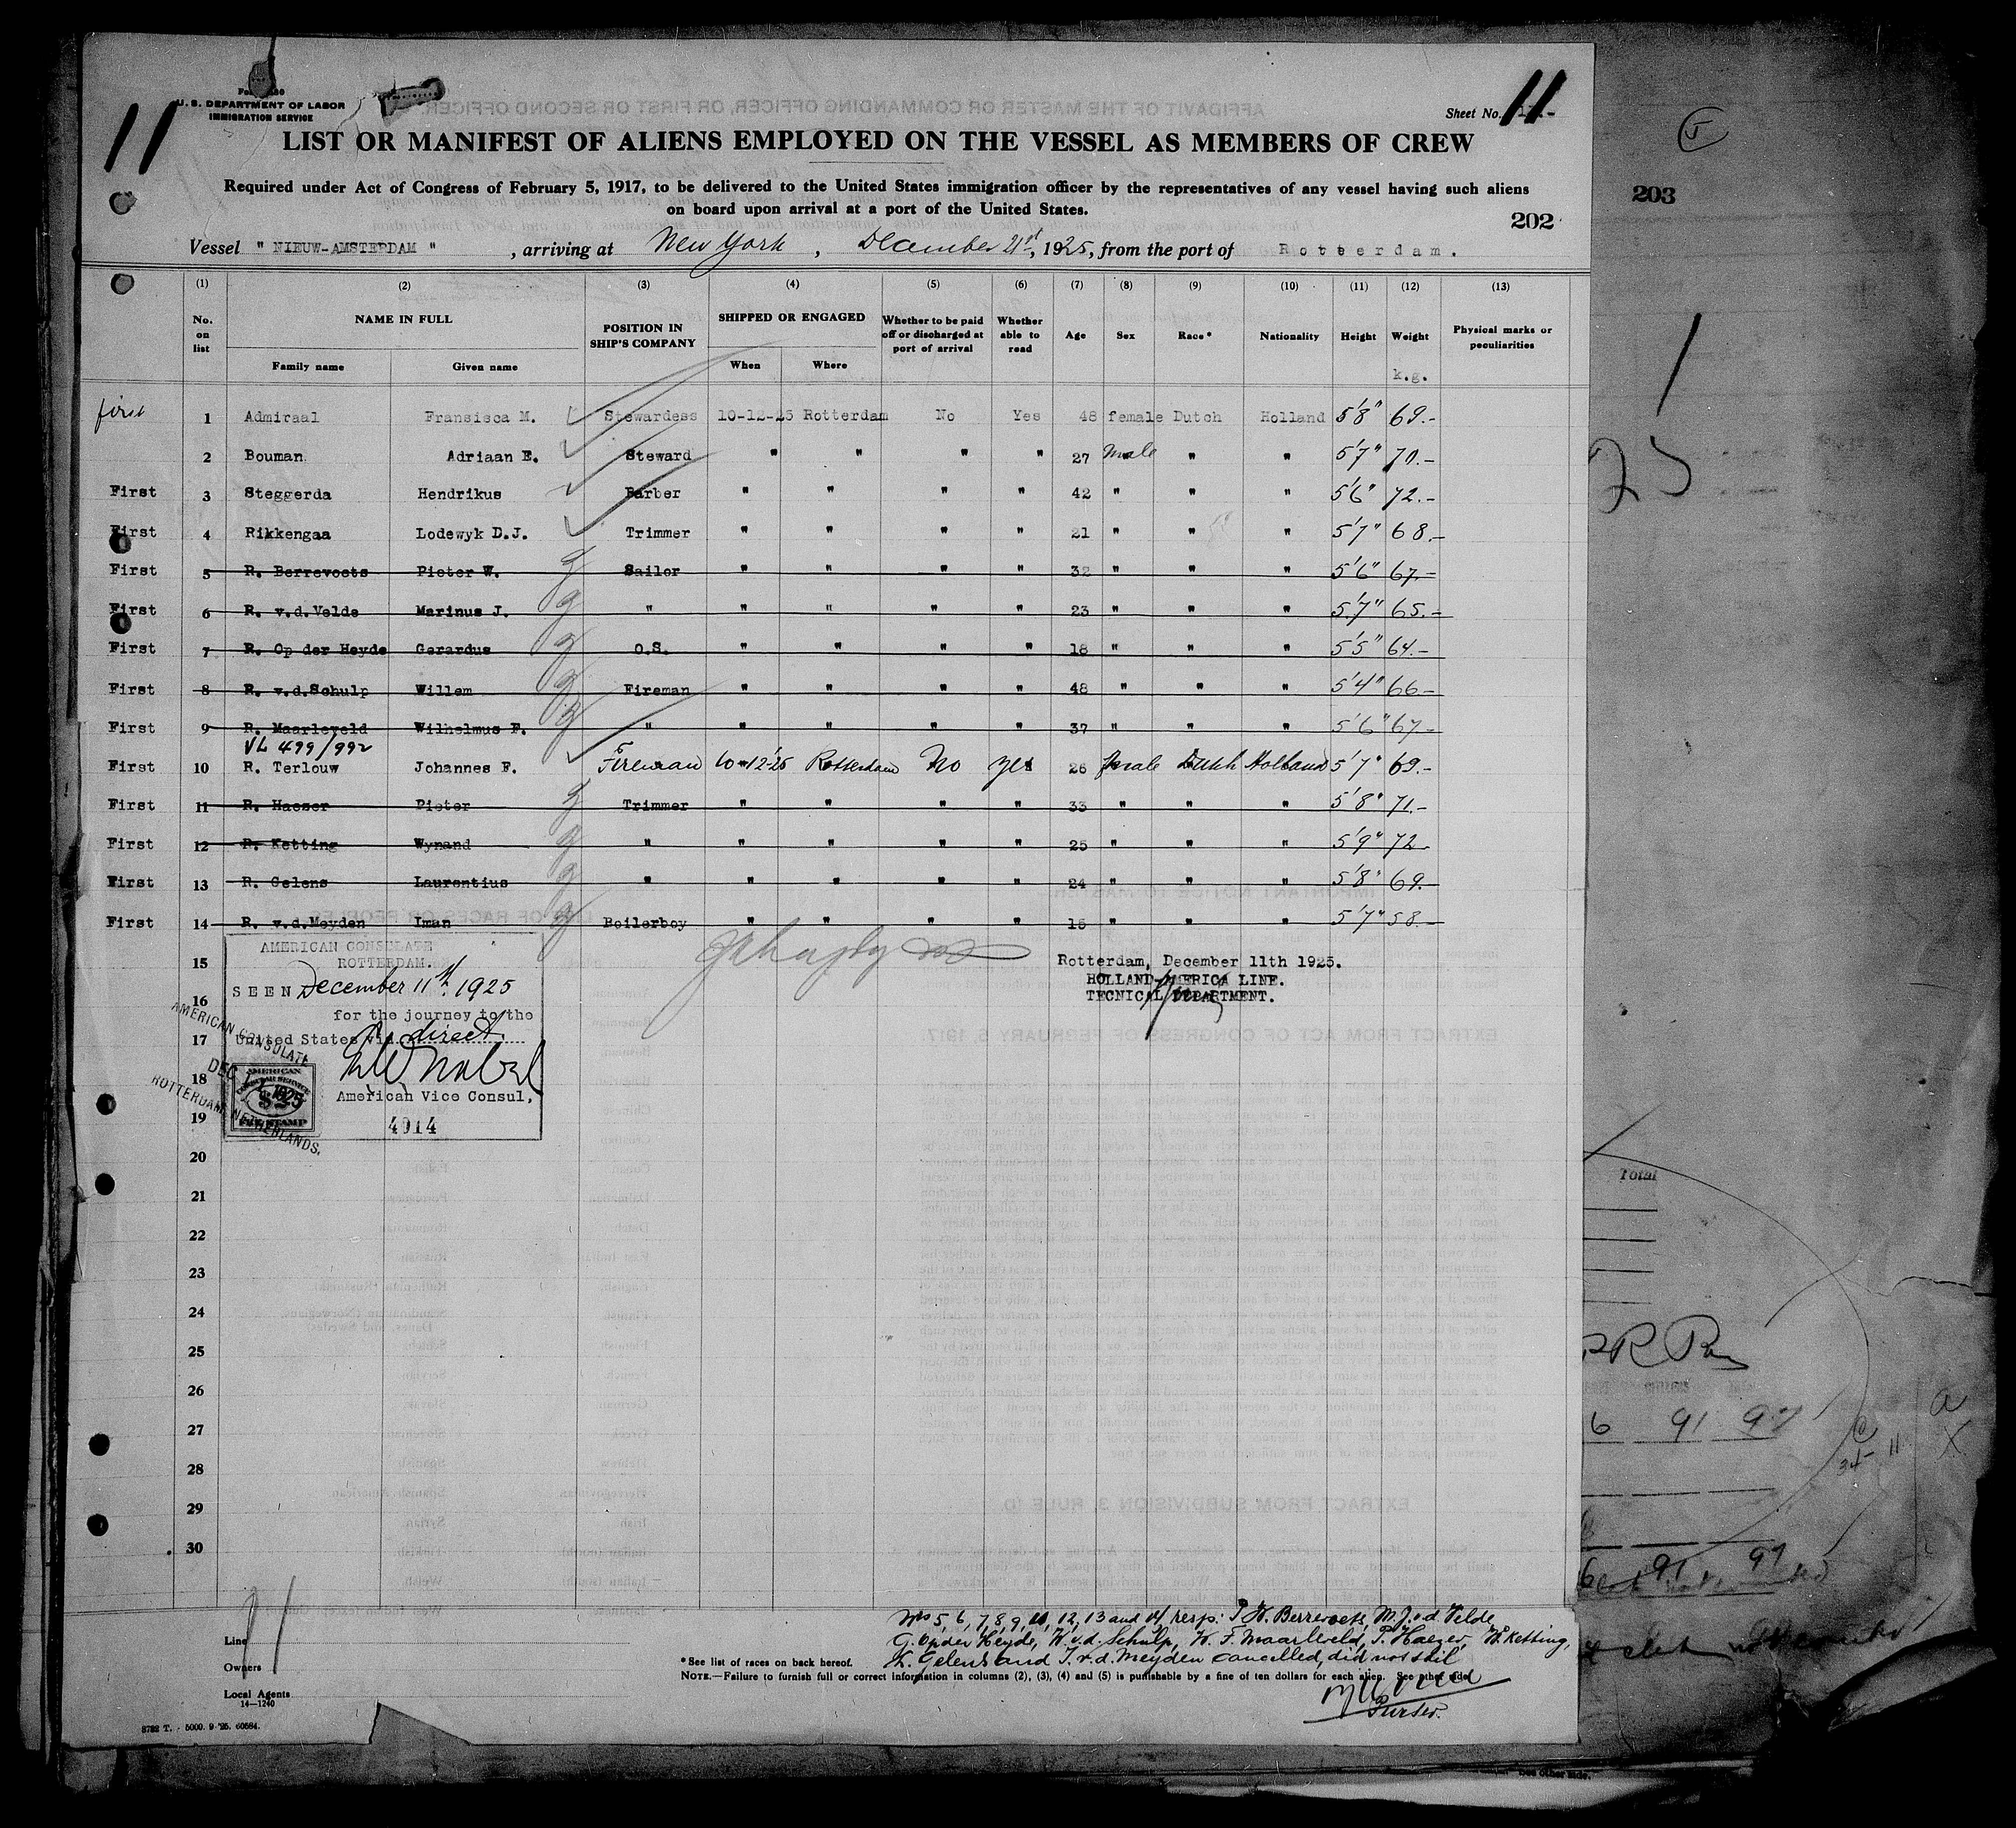 U. S. DEPARTMENT OF LABOR
IMMIGRATION SERVICE
11
Sheet No. 11
LIST OR MANIFEST OF ALIENS EMPLOYED ON THE VESSEL AS MEMBERS OF CREW
Required under Act of Congress of February 5, 1917, to be delivered to the United States immigration officer by the representatives of any vessel having such aliens
on board upon arrival at a port of the United States.
202
203
Vessel " NIEUW-AMSTERDAM " , arriving at New York , December 21st, 1925, from the port of Rotterdam.
(1) (2) (3) (4) (5) (6) (7) (8) (9) (10) (11) (12) (13)
No. on list NAME IN FULL Family name Given name POSITION IN SHIP'S COMPANY SHIPPED OR ENGAGED When Where Whether to be paid off or discharged at port of arrival Whether able to read Age Sex Race* Nationality Height Weight Physical marks or peculiarities
k.g.
first 1 Admiraal Fransisca M. Stewardess 10-12-25 Rotterdam No Yes 48 female Dutch Holland 5'8" 69.-
2 Bouman Adriaan E. Steward " " " " 27 male " " 5'7" 70.-
First 3 Steggerda Hendrikus Barber " " " " 42 " " " 5'6" 72.-
First 4 Rikkengaa Lodewyk D.J. Trimmer " " " " 21 " " " 5'7" 68.-
First 5 R. Berrevoets Pieter W. Sailor " " " " 32 " " " 5'6" 67.-
First 6 R. v.d.Velde Marinus J. " " " " " 23 " " " 5'7" 65.-
First 7 R. Op der Heyde Gerardus O.S. " " " " 18 " " " 5'5" 64.-
First 8 R. v.d.Schulp Willem Fireman " " " " 48 " " " 5'4" 66.-
First 9 R. Maarleveld Wilhelmus F. " " " " " 37 " " " 5'6" 67.-
VL 499/992
First 10 R. Terlouw Johannes F. Fireman 10-12-'25 Rotterdam No yes 26 male Dutch Holland 5'7" 69.-
First 11 R. Haezer Pieter Trimmer " " " " 33 " " " 5'8" 71.-
First 12 R. Ketting Wynand " " " " " 25 " " " 5'9" 72.-
First 13 R. Gelens Laurentius " " " " " 24 " " " 5'8" 69.-
First 14 R. v.d.Meyden Iman Boilerboy " " " " 15 " " " 5'7" 58.-
AMERICAN CONSULATE
ROTTERDAM.
SEEN December 11th, 1925
for the journey to the
United States via direct
American Vice Consul,
4914
AMERICAN CONSULATE
DEC 1925
ROTTERDAM, NETHERLANDS.
AMERICAN
FEE STAMP
Rotterdam, December 11th 1925.
HOLLAND-AMERICA LINE.
TECNICAL DEPARTMENT.
15
16
17
18
19
20
21
22
23
24
25
26
27
28
29
30
11
Total
6 91 97
6 91 97
Nos 5, 6, 7, 8, 9, 11, 12, 13 and 14 resp: P. W. Berrevoets, M. J. v. d. Velde,
G. Op der Heyde, W. v. d. Schulp, W. F. Maarleveld, P. Haezer, W. Ketting,
L. Gelens and I. v. d. Meyden cancelled, did not sail
Line
Owners
Local Agents
14—1240
*See list of races on back hereof.
NOTE.—Failure to furnish full or correct information in columns (2), (3), (4) and (5) is punishable by a fine of ten dollars for each alien. See other side.
Purser.
8782 T. - 5000. 9-'25. 60584.
See other side.